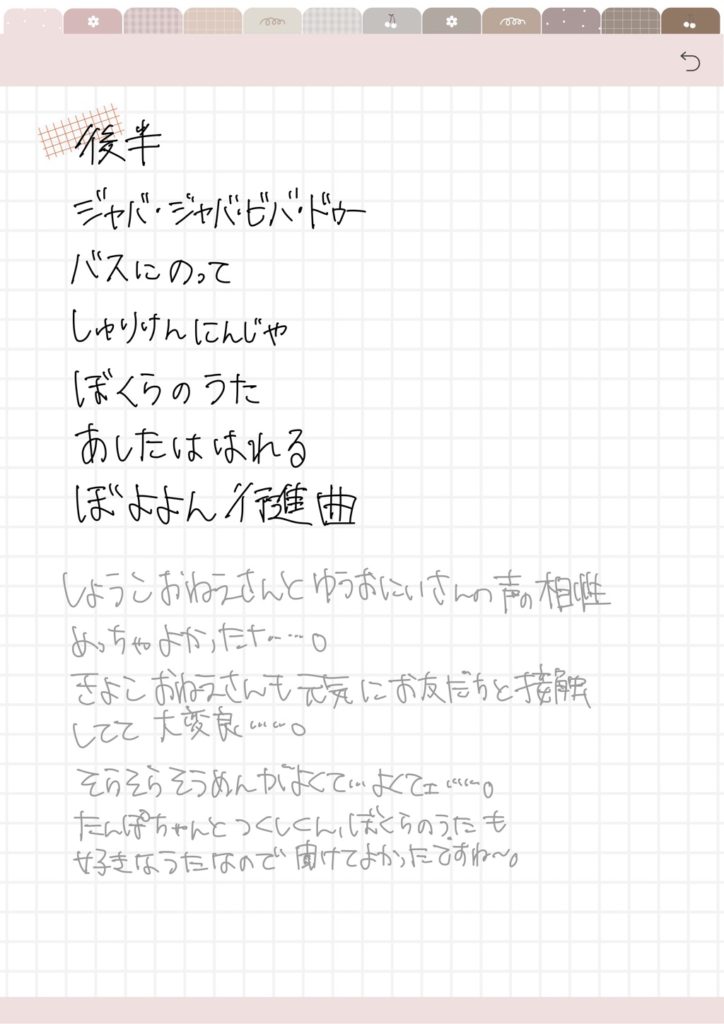 後半
ジャバ・ジャバ・ビバ・ドゥー
バスにのって
しゅりけんにんじゃ
ぼくらのうた
あしたははれる
ぼよよん行進曲
しょうこおねえさんとゆうおにいさんの声の相性
めっちゃよかったナ……。
きよこおねえさんも元気にお友だちと接触
してて大変良……。
そらそらそうめんがよくて…よくてェ……。
たんぽぽちゃんとつくしくん、ぼくらのうたも
好きなうたなので聞けてよかったですね〜。